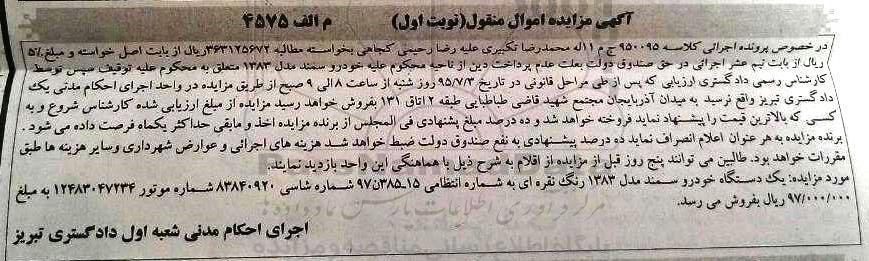 آگهی مزایده اموال منقول(نوبت اول) م الف ۴۵۷۵
در خصوص پرونده اجرائی کلاسه ۹۵۰۰۹۵ ج م ۱ له محمدرضا تکبیری علیه رضا رحیمی کجاهی بخواسته مطالبه ۳۶۳۱۲۵۶۷۲ ریال از بابت اصل خواسته و مبلغ ۵٪
ریال از بابت نیم عشر اجرائی در حق صندوق دولت بعلت عدم پرداخت دین از ناحیه محکوم علیه خودرو سمند مدل ۱۳۸۳ متعلق به محکوم علیه توقیف سپس توسط
کارشناس رسمی دادگستری ارزیابی که پس از طی مراحل قانونی در تاریخ ۹۵/۷/۳ روز شنبه از ساعت ۸ الی ۹ صبح از طریق مزایده در واحد اجرای احکام مدنی یک
دادگستری تبریز واقع نرسید به میدان آذربایجان مجتمع شهید قاضی طباطبایی طبقه ۲ اتاق ۱۳۱ بفروش خواهد رسید مزایده از مبلغ ارزیابی شده کارشناس شروع و به
کسی که بالاترین قیمت را پیشنهاد نماید فروخته خواهد شد و ده درصد مبلغ پشنهادی فی المجلس از برنده مزایده اخذ و مابقی حداکثر یکماه فرصت داده می شود .
برنده مزایده به هر عنوان اعلام انصراف نماید ده درصد پیشنهادی به نفع صندوق دولت ضبط خواهد شد هزینه های اجرائی و عوارض شهرداری وسایر هزینه ها طبق
مقررات خواهد بود. طالبین می توانند پنج روز قبل از مزایده از اقلام به شرح ذیل با هماهنگی این واحد بازدید نمایند.
مورد مزایده: یک دستگاه خودرو سمند مدل ۱۳۸۳ رنگ نقره ای به شماره انتظامی ۱۵-۳۸۵ن۹۷ شماره شاسی ۸۳۸۴۰۹۲۰ شماره موتور ۱۲۴۸۳۰۴۷۲۳۴ به مبلغ
۹۷/۰۰۰/۰۰۰ ریال بفروش می رسد.
اجرای احکام مدنی شعبه اول دادگستری تبریز